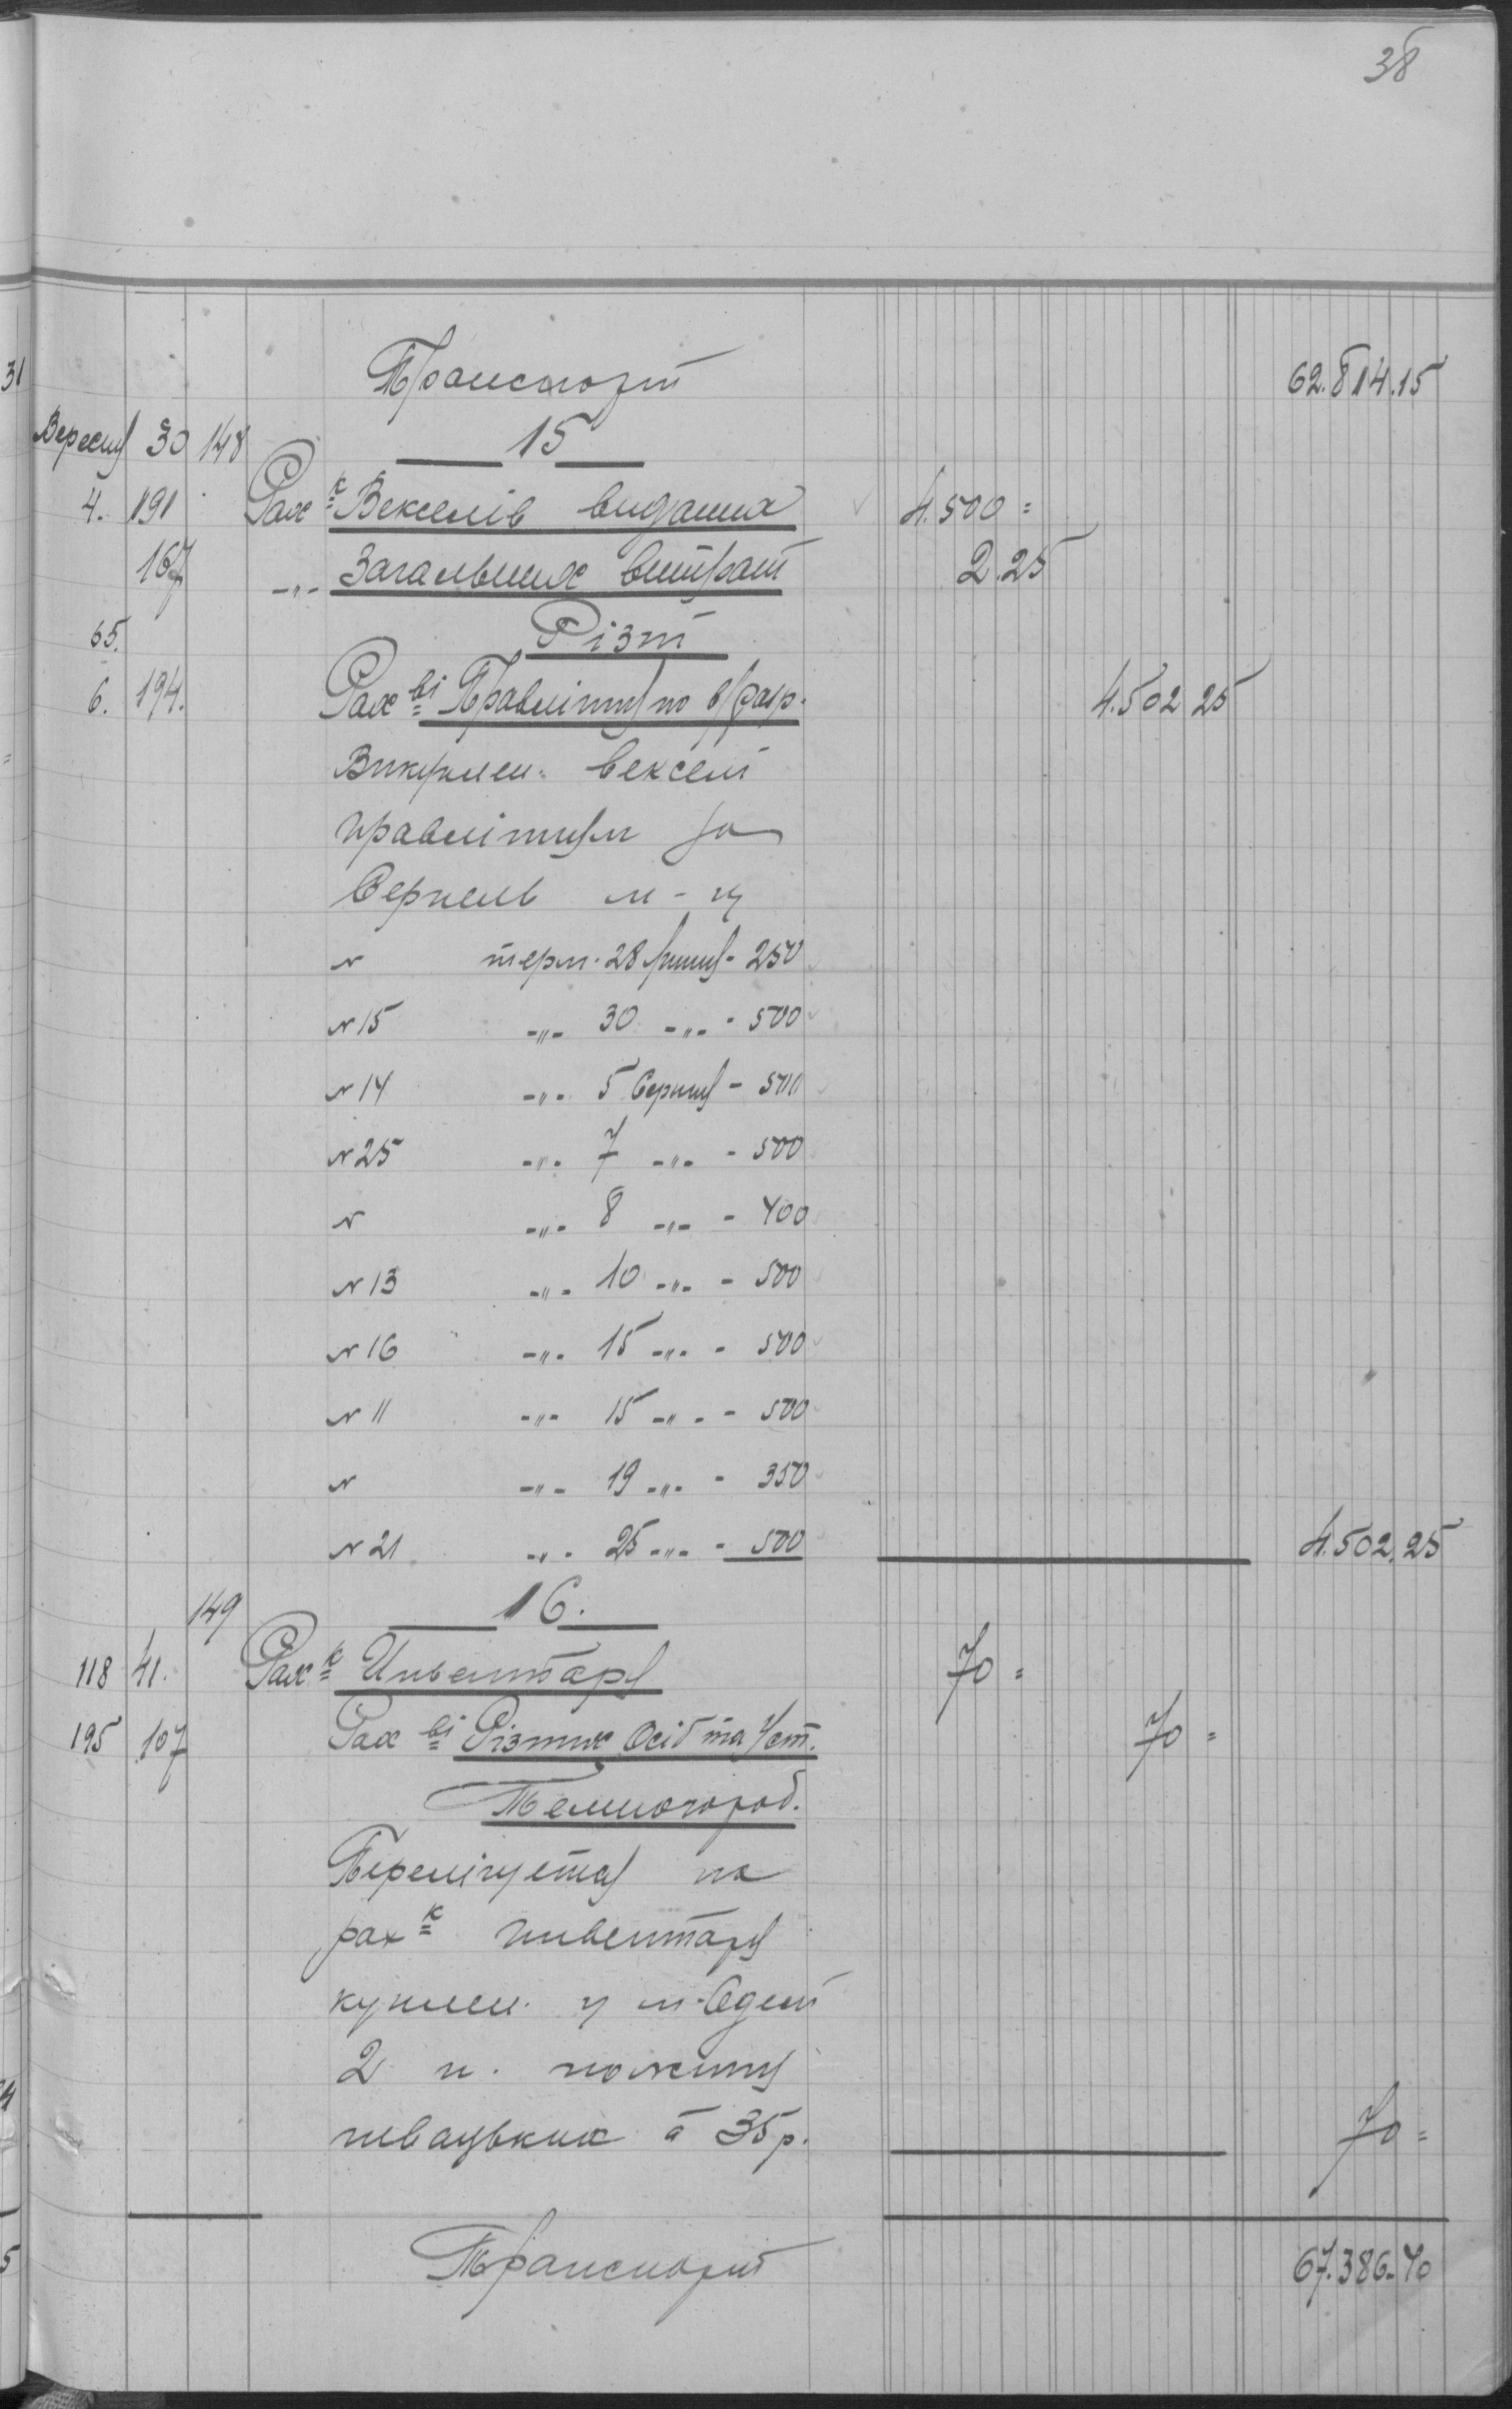 38
Транспорт 62.814.15
Вересня 30 148 15
4. 191 Рах к Векселів виданих 4.500=
167 -"- Загальних витрат 2.25
65. Різні
6. 194. Рах ві Правлінню по 4.502 25
Викуплен. векселі
правлінням за
Серпень м-ц
N терм. 28 липня - 250
N 15 -"- 30 -"- - 500
N 14 -"- 5 Серпня - 500
N 25 -"- 7 -"- - 500
N -"- 8 -"- - 400
N 13 -"- 10 -"- - 500
N 16 -"- 15 -"- - 500
N 11 -"- 15 -"- - 500
N -"- 19 -"- - 350
N 21 -"- 25 -"- - 500 4.502.25
149 16.
118 41. Рах к Инвентаря 70=
195 107 Рах ві Різних Осіб та Уст. 70=
Перелічується на
рах к инвентаря
куплен. у м. Одесі
2 п.
швацьких à 35 р. 70=
Транспорт 67.386.40